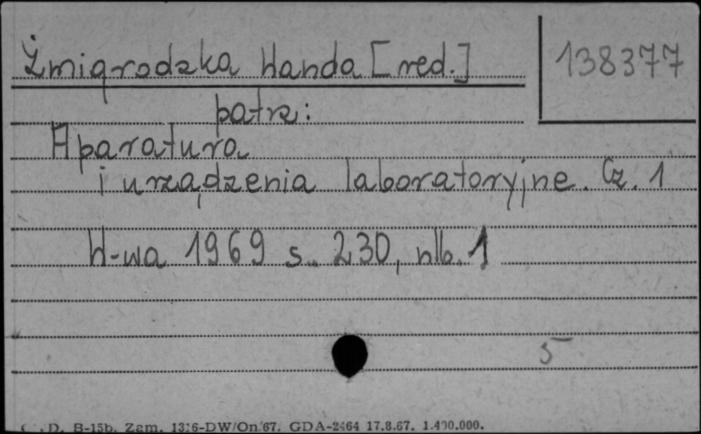 Żmigrodzka Wanda [red.]
138377
patrz:
Aparatura
i urządzenia laboratoryjne. Cz. 1
W-wa 1969 s. 230, nlb. 1
5
D. B-15b. Zam. 1316-DW/On/67. GDA-2464 17.8.67. 1.400.000.